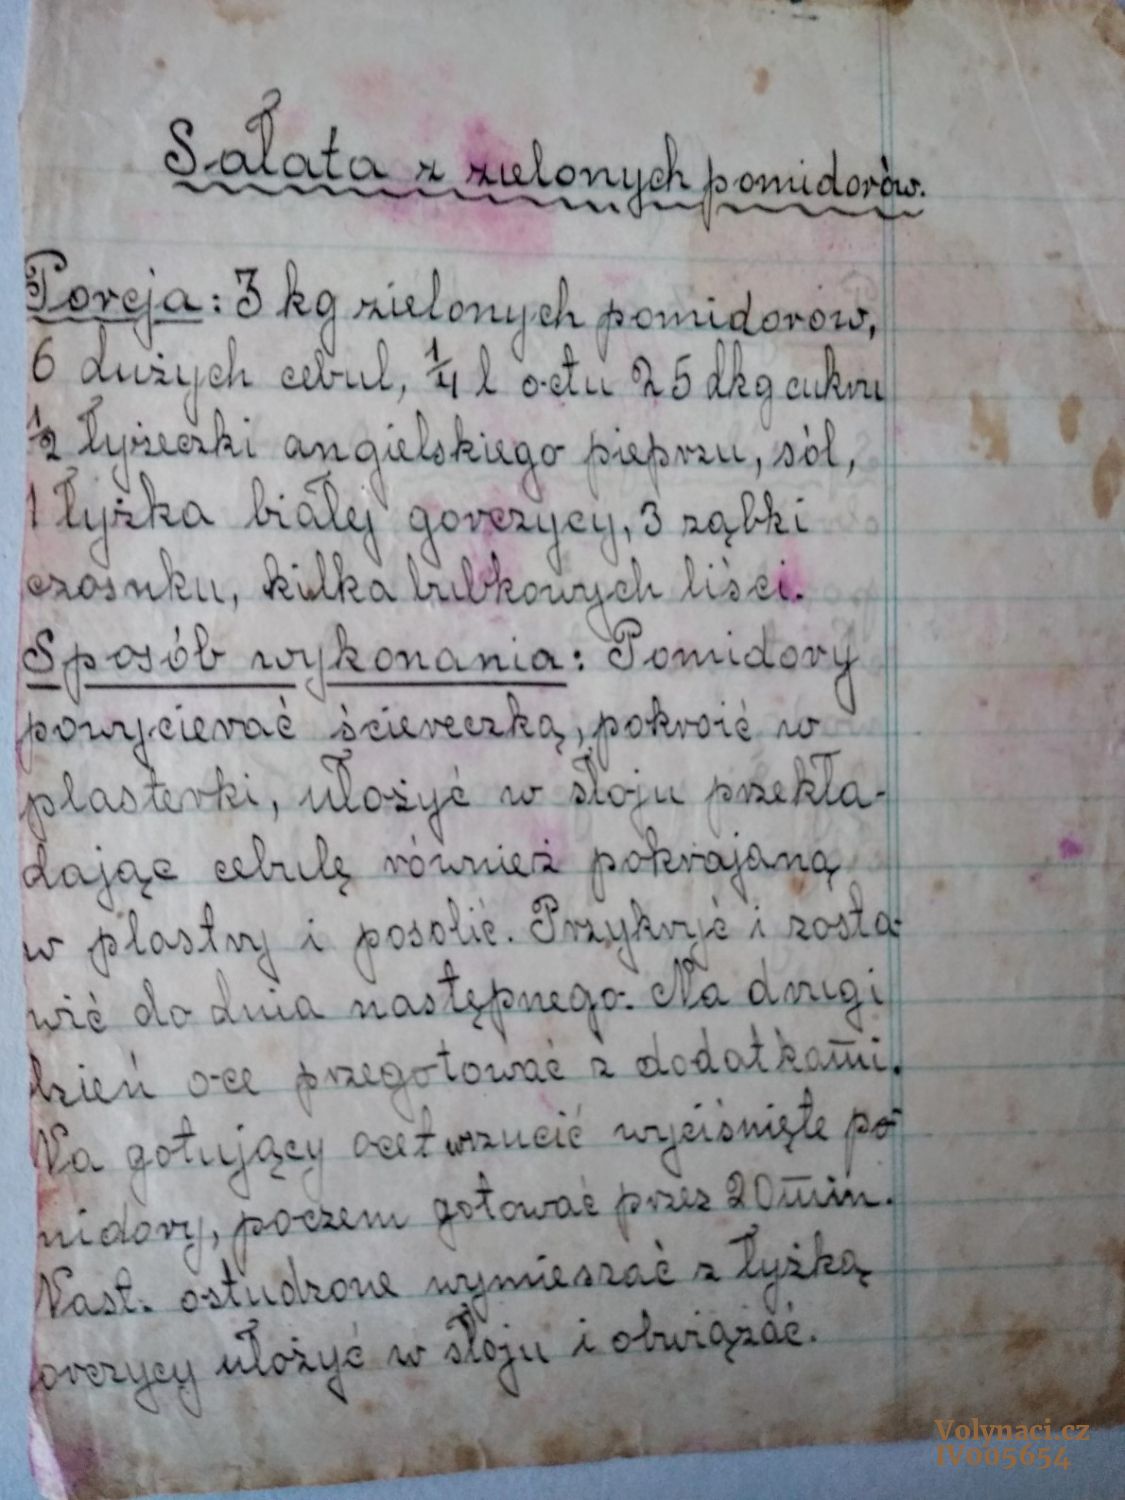 Sałata z zielonych pomidorów.
Porcja: 3 kg zielonych pomidorów,
6 dużych cebul, 1/4 l octu 25 dkg cukru
1/2 łyżeczki angielskiego pieprzu, sól,
1 łyżka białej gorczycy, 3 ząbki
czosnku, kilka bubkowych liści.
Sposób wykonania: Pomidory
powycierać ściereczką, pokroić w
plasterki, ułożyć w słoju przekła-
dając cebulę również pokrajaną
w plastry i posolić. Przykryć i zosta-
wić do dnia następnego. Na drugi
dzień oce przegotować z dodatkami.
Na gotujący ocet wrzucić wyciśnięte po-
midory, poczem gotować przez 20 min.
Nast. ostudzone wymieszać z łyżką
orczycy ułożyć w słoju i obwiązać.
Volynaci.cz
IV005654